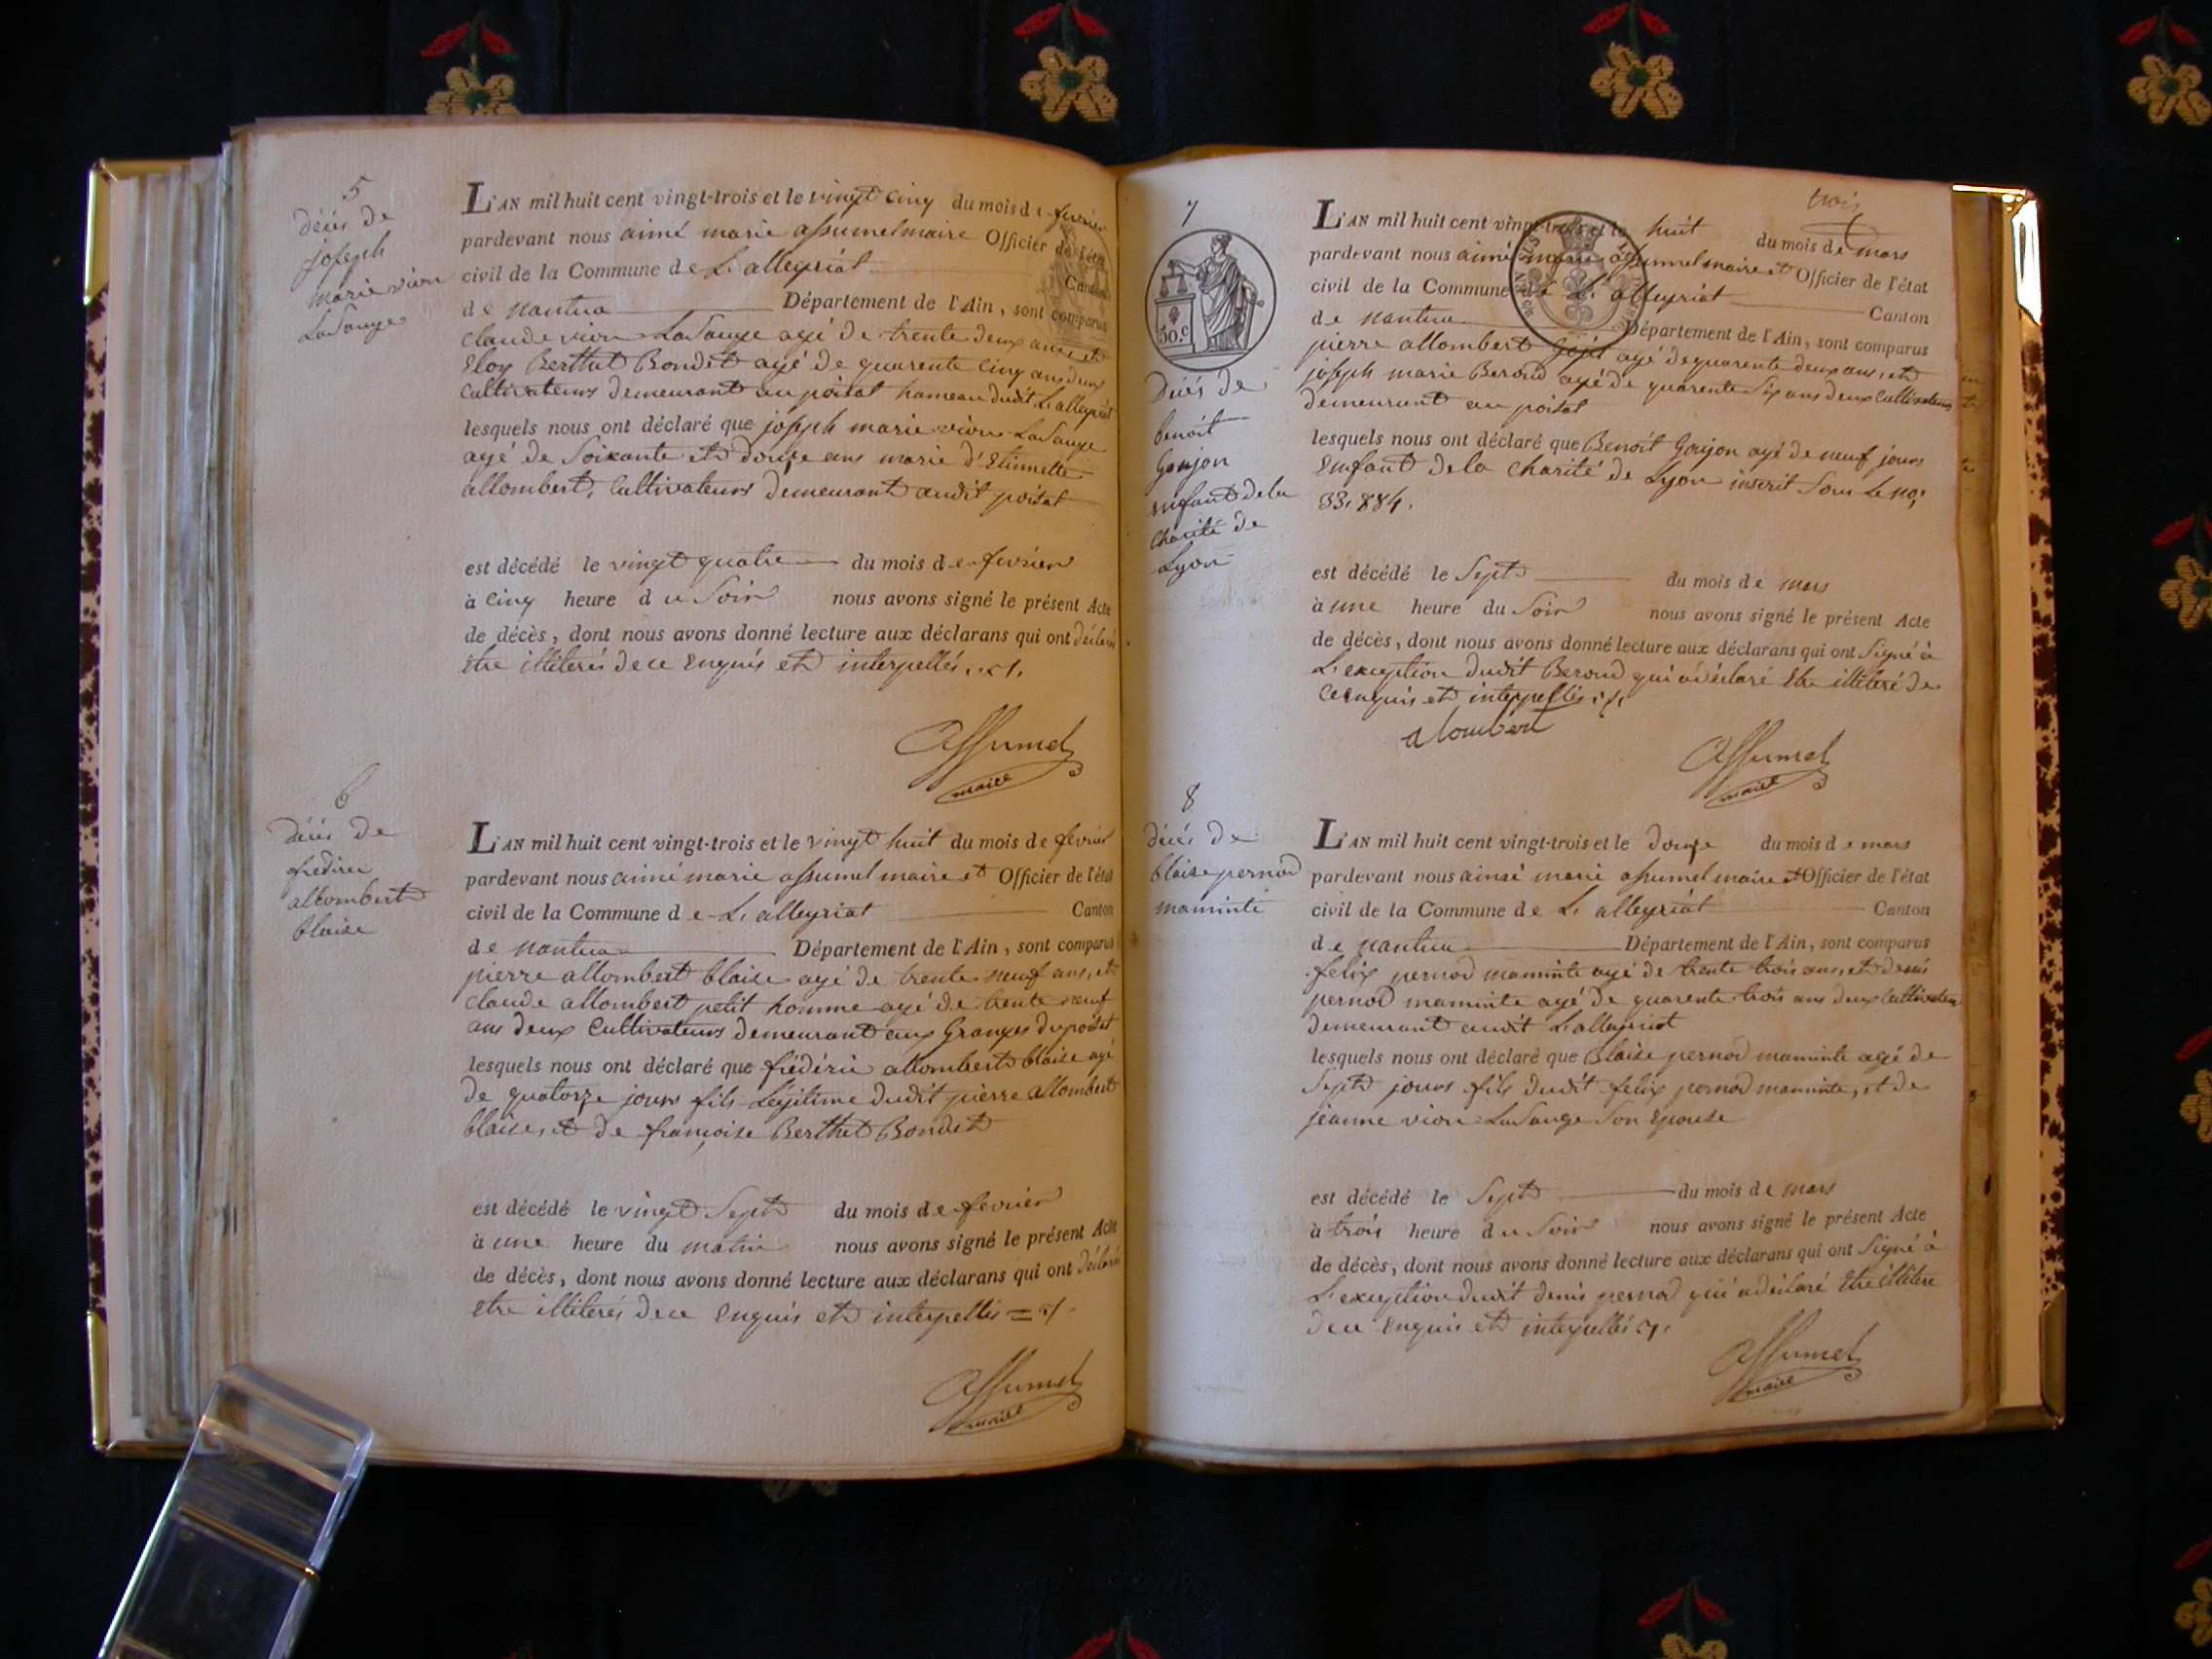 5
décès de
joseph
marie vion
LaSauge
L'AN mil huit cent vingt-trois et le vingt cinq du mois de fevrier
pardevant nous aimé marie assumel maire Officier de l'état
civil de la Commune de L'alleyriat Canton
de nantua Département de l'Ain, sont comparus
claude vion LaSauge agé de trente deux ans et
Eloy Berthet Bondet agé de quarente cinq ans deux
cultivateurs demeurant au poizat hameau dudit L'alleyriat
lesquels nous ont déclaré que joseph marie vion LaSauge
agé de Soixante et douze ans marie d'Etiennette
allombert, cultivateurs demeurant audit poizat
est décédé le vingt quatre du mois de fevrier
à cinq heure du Soir nous avons signé le présent Acte
de décès, dont nous avons donné lecture aux déclarans qui ont déclaré
Etre illiterés de ce Enquis et interpellés
Assumel
maire
6
décès de
frederic
allombert
blaise
L'AN mil huit cent vingt-trois et le vingt huit du mois de fevrier
pardevant nous aimé marie assumel maire et Officier de l'état
civil de la Commune de L'alleyriat Canton
de nantua Département de l'Ain, sont comparus
pierre allombert blaise agé de trente neuf ans, et
claude allombert petit homme agé de trente neuf
ans deux cultivateurs demeurant aux Granges du poizat
lesquels nous ont déclaré que frédéric allombert blaise agé
de quatorze jours fils Légitime dudit pierre allombert
blaise, et de françoise Berthet Bondet
est décédé le vingt Sept du mois de fevrier
à une heure du matin nous avons signé le présent Acte
de décès, dont nous avons donné lecture aux déclarans qui ont déclaré
Etre illiterés de ce Enquis et interpellés
Assumel
maire
trois
7
50.c
Décès de
benoit
Goujon
enfant de la
charité de
Lyon
L'AN mil huit cent vingt-trois et le huit du mois de mars
pardevant nous aimé marie assumel maire et Officier de l'état
civil de la Commune de L'alleyriat Canton
de nantua Département de l'Ain, sont comparus
pierre allombert agé de quarente deux ans, et
joseph marie Beroud agé de quarente Six ans deux cultivateurs
demeurant au poizat
lesquels nous ont déclaré que Benoit Goujon agé de neuf jours
Enfant de la charité de Lyon inscrit Sous Le no.
33,884.
est décédé le Sept du mois de mars
à une heure du Soir nous avons signé le présent Acte
de décès, dont nous avons donné lecture aux déclarans qui ont Signé à
L'exception dudit Beroud qui a déclaré Etre illiteré de
ce enquis et interpellés
alombert
Assumel
maire
8
décès de
blaise pernod
maminte
L'AN mil huit cent vingt-trois et le douze du mois de mars
pardevant nous aimé marie assumel maire et Officier de l'état
civil de la Commune de L'alleyriat Canton
de nantua Département de l'Ain, sont comparus
felix pernod maminte agé de trente trois ans, et denis
pernod maminte agé de quarente trois ans deux cultivateurs
demeurant audit L'alleyriat
lesquels nous ont déclaré que Blaise pernod maminte agé de
Sept jours fils dudit felix pernod maminte, et de
jeanne vion LaSauge Son Epouse
est décédé le Sept du mois de mars
à trois heure du Soir nous avons signé le présent Acte
de décès, dont nous avons donné lecture aux déclarans qui ont Signé à
L'exception dudit denis pernod qui a déclaré Etre illitere
de ce Enquis et interpellés
Assumel
maire